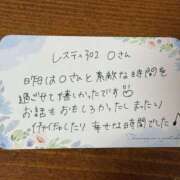 レスティ302 Oさん
昨日はOさんと素敵な時間を
過ごせて嬉しかったです
お話もおもしろかったし まったり
イチャイチャしたり 幸せな時間でした♪